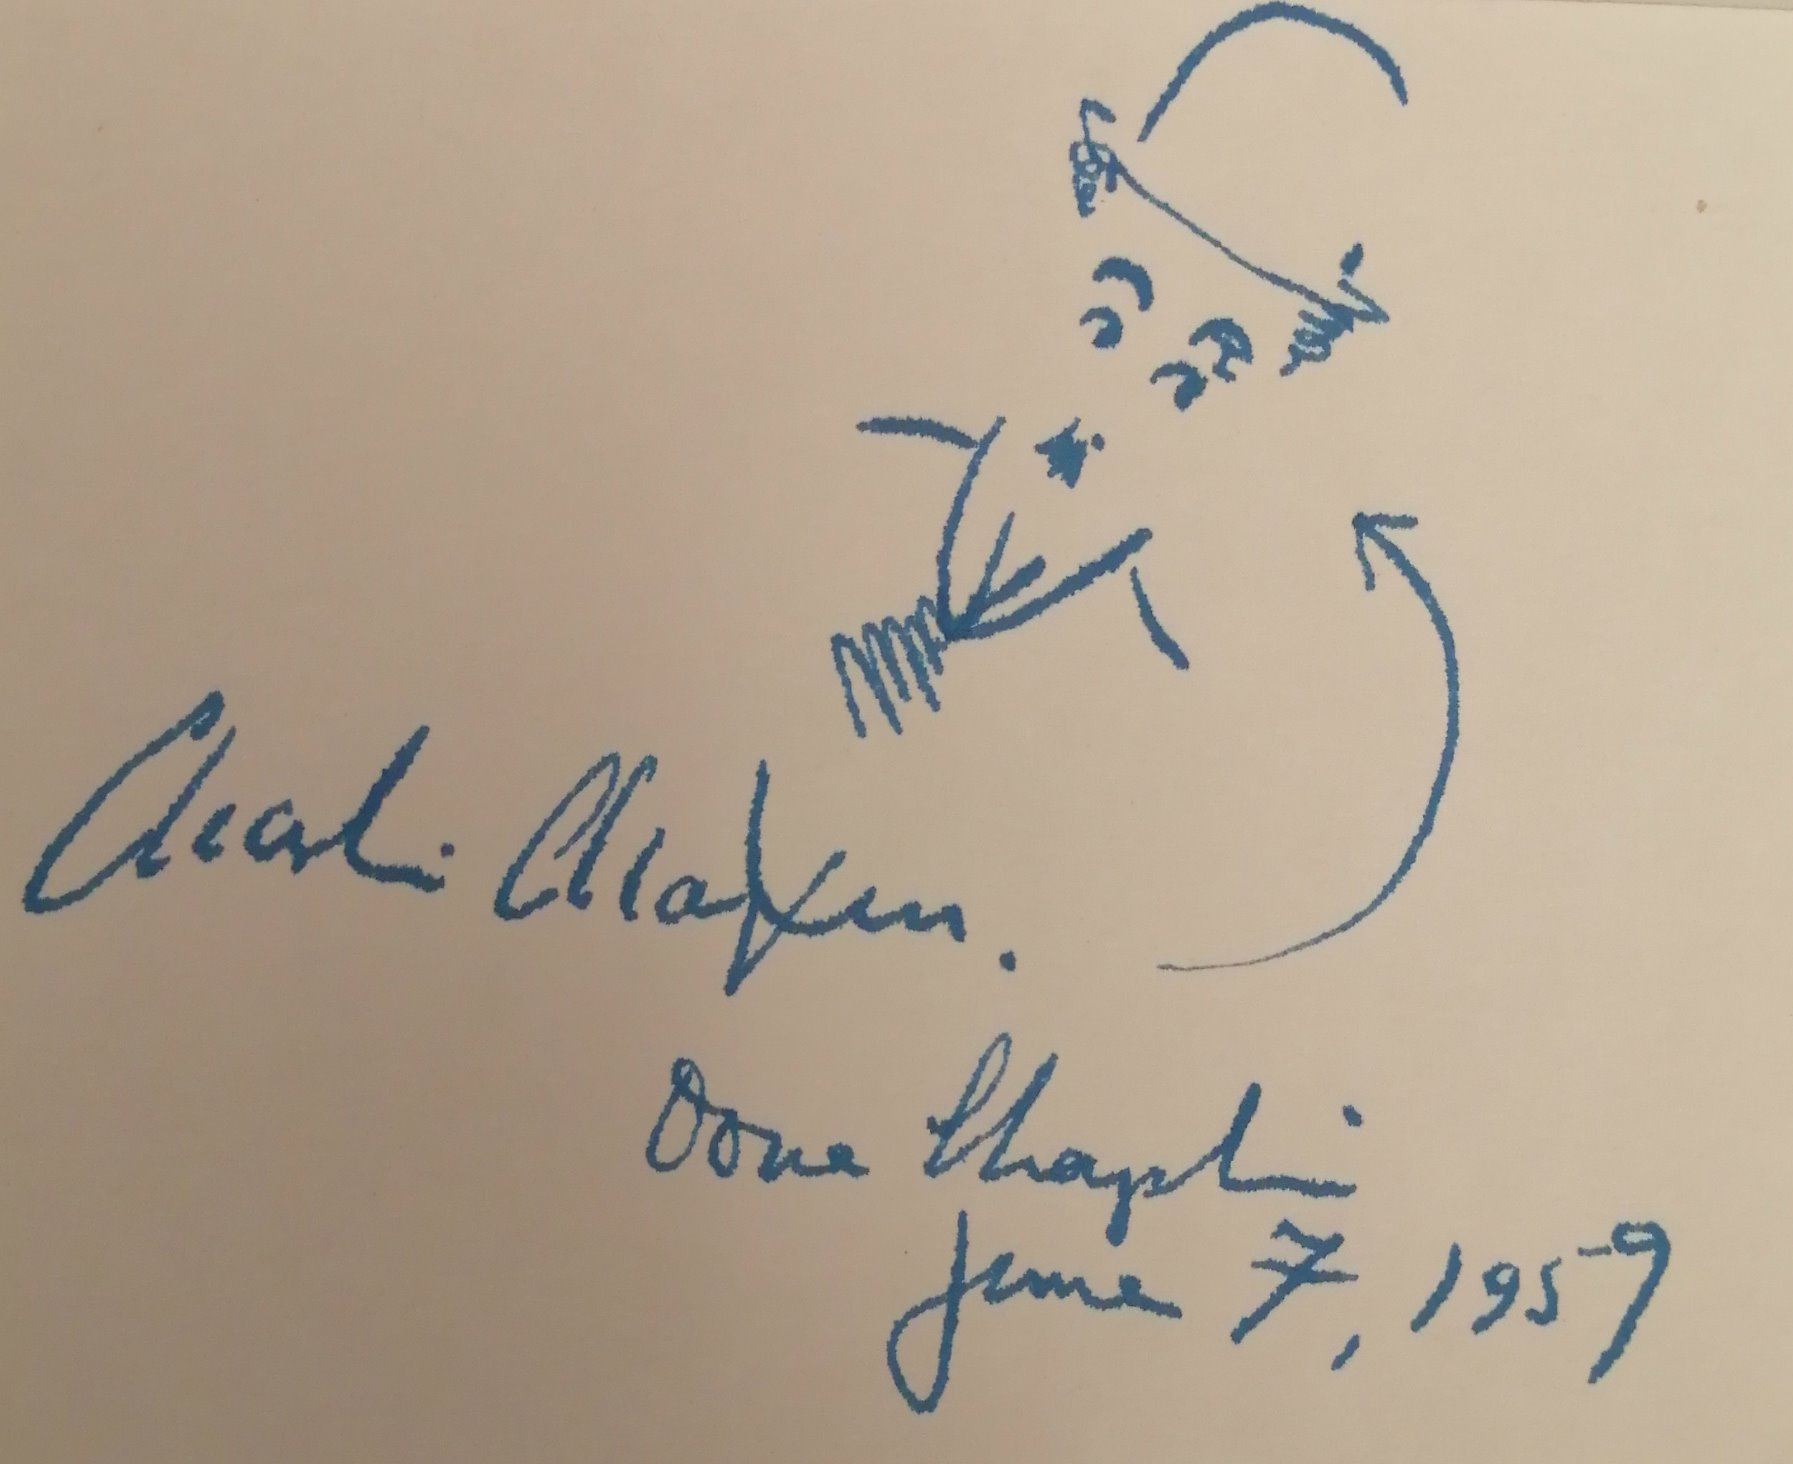 Charlie Chaplin.
Oona Chaplin
June 7, 1959